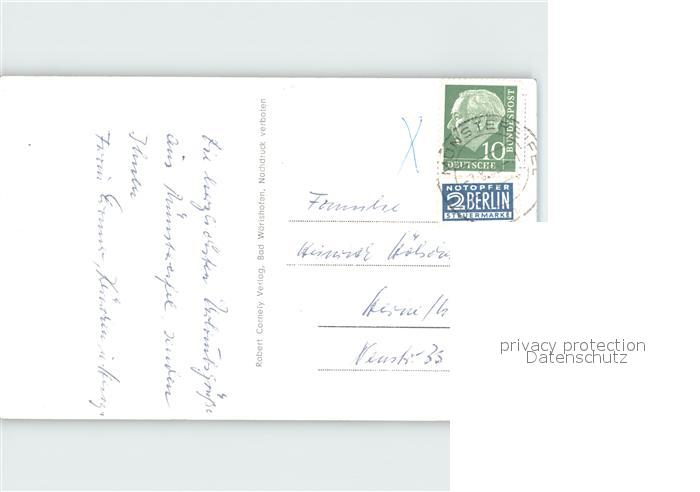 Die herzlichsten Urlaubsgrüße
aus Münstereifel senden
Ihnen
Robert Cornely Verlag, Bad Wörishofen, Nachdruck verboten
10
DEUTSCHE
BUNDESPOST
MÜNSTEREIFEL
NOTOPFER
2 BERLIN
STEUERMARKE
Familie
Heinrich
Herne/
33
privacy protection
Datenschutz